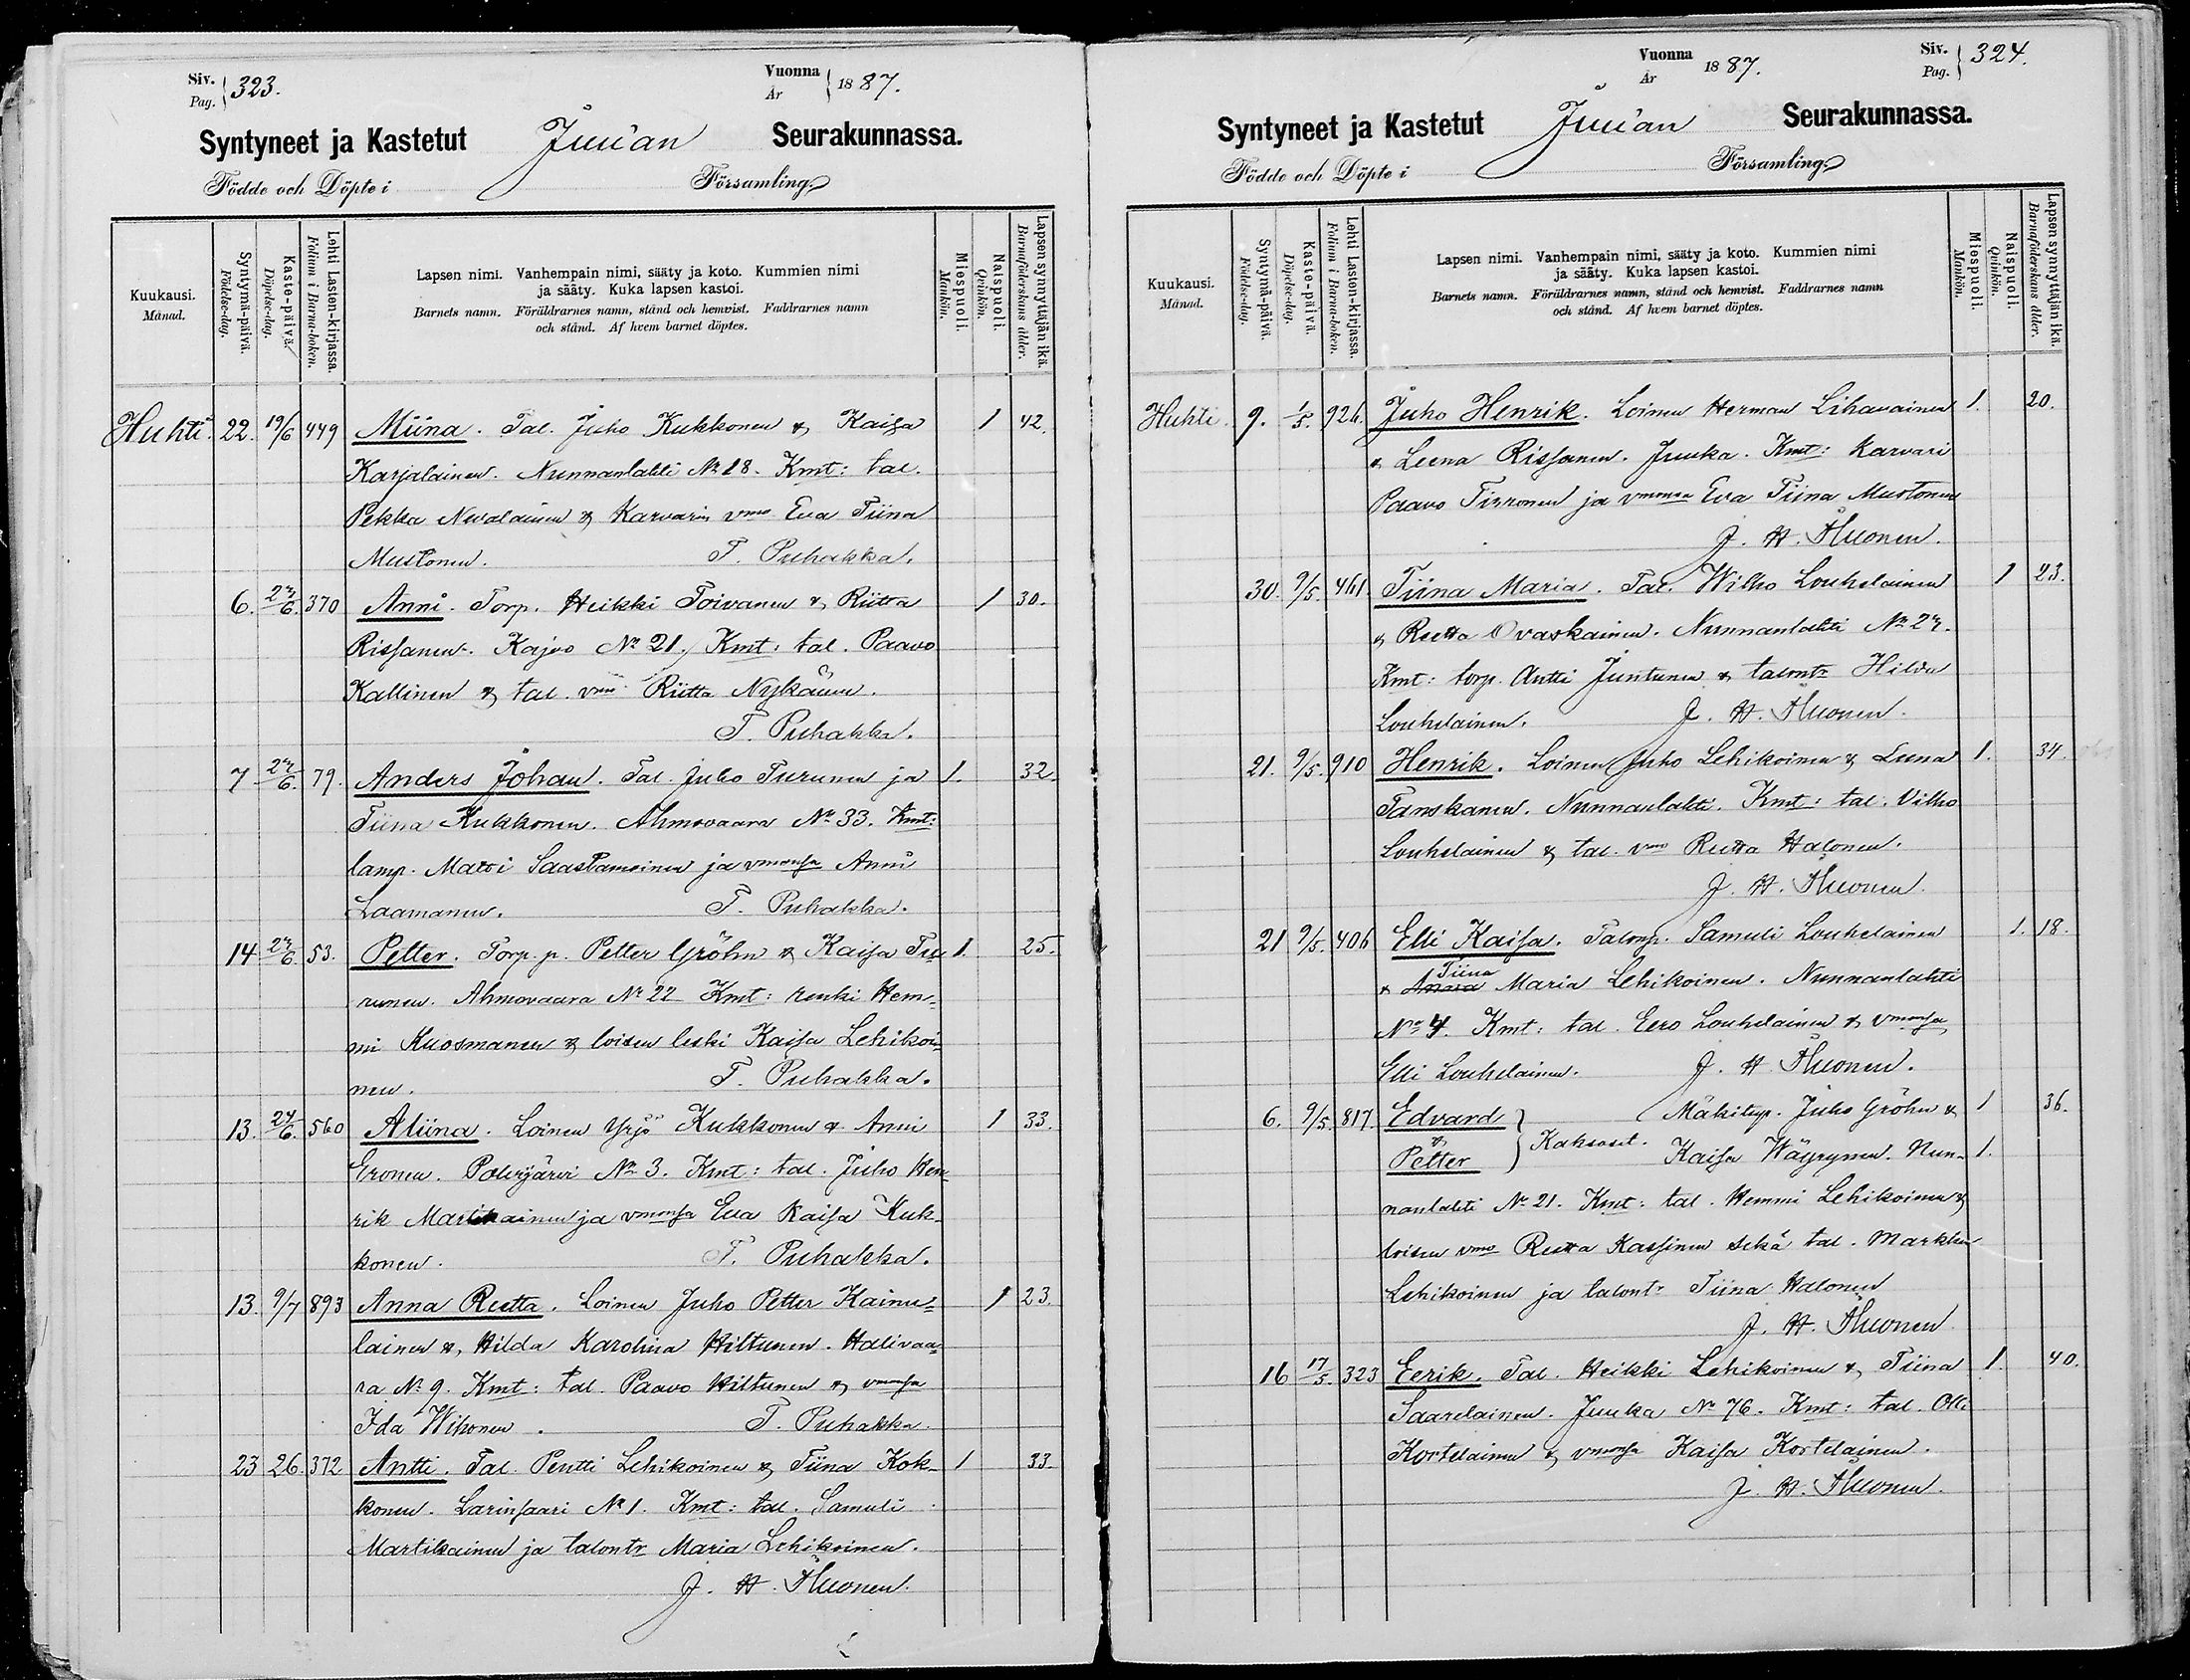 Siv. Pag. } 323.
Vuonna År } 1887.
Syntyneet ja Kastetut Juuan Seurakunnassa.
Födde och Döpte i Församling.
Kuukausi. Månad.
Syntymä-päivä. Födelse-dag.
Kaste-päivä. Döpelse-dag.
Lehti Lasten-kirjassa. Folium i Barna-boken.
Lapsen nimi. Vanhempain nimi, sääty ja koto. Kummien nimi
ja sääty. Kuka lapsen kastoi.
Barnets namn. Föräldrarnes namn, stånd och hemvist. Faddrarnes namn
och stånd. Af hvem barnet döptes.
Miespuoli. Mankön.
Naispuoli. Qvinkön.
Lapsen synnyttäjän ikä. Barnaföderskans ålder.
Huhti. 22. 19/6 449 Miina. Tal. Juho Kukkonen & Kaisa 1 42.
Karjalainen. Nunnanlahti No 18. Kmt: tal.
Pekka Nevalainen & Karvarin vmo Eva Tiina
Mustonen. T. Puhakka.
6. 27/6. 370 Anni. Torp. Heikki Toivanen & Riitta 1 30.
Rissanen. Kajoo No 21. Kmt: tal. Paavo
Kallinen & tal. vmo Riitta Nykänen.
T. Puhakka.
7 27/6. 79. Anders Johan. Tal. Juho Turunen ja 1. 32.
Tiina Kukkonen. Ahmovaara No 33. Kmt:
lamp. Matti Saastamoinen ja vmonsa Anni
Laamanen. T. Puhakka.
14 27/6. 53. Petter. Torp. p. Petter Gröhn & Kaisa Tu- 1. 25.
runen. Ahmovaara No 22 Kmt: renki Hem-
mi Kuosmanen & loisen leski Kaisa Lehikoi-
nen. T. Puhakka.
13. 24/6. 560 Aliina. Loinen Yrjö Kukkonen & Anni 1 33.
Eronen. Polvijärvi No 3. Kmt: tal. Juho Hen-
rik Martikainen ja vmonsa Eva Kaisa Kuk-
konen. T. Puhakka.
13. 9/7 893 Anna Reetta. Loinen Juho Petter Kainu- 1 23.
lainen & Hilda Karolina Hiltunen. Halivaa-
ra No 9. Kmt: tal. Paavo Hiltunen & vmonsa
Ida Wihonen. T. Puhakka.
23 26. 372 Antti. Tal. Pentti Lehikoinen & Tiina Kok- 1 33.
konen. Larinsaari No 1. Kmt: tal. Samuli
Martikainen ja talontr Maria Lehikoinen.
J. H. Ahuonen.
Vuonna År 1887.
Siv. Pag. } 324.
Syntyneet ja Kastetut Juuan Seurakunnassa.
Födde och Döpte i Församling.
Kuukausi. Månad.
Syntymä-päivä. Födelse-dag.
Kaste-päivä. Döpelse-dag.
Lehti Lasten-kirjassa. Folium i Barna-boken.
Lapsen nimi. Vanhempain nimi, sääty ja koto. Kummien nimi
ja sääty. Kuka lapsen kastoi.
Barnets namn. Föräldrarnes namn, stånd och hemvist. Faddrarnes namn
och stånd. Af hvem barnet döptes.
Miespuoli. Mankön.
Naispuoli. Qvinkön.
Lapsen synnyttäjän ikä. Barnaföderskans ålder.
Huhti. 9. 1/5. 926. Juho Henrik. Loinen Herman Lihavainen 1. 20.
& Leena Rissanen. Juuka. Kmt: Karvari
Paavo Tirronen ja vmonsa Eva Tiina Mustonen
J. H. Ahuonen.
30. 9/5. 461 Tiina Maria. Tal. Wilho Louhelainen 1 23.
& Reetta Ovaskainen. Nunnanlahti No 27.
Kmt: torp. Antti Juntunen & talontr Hilda
Louhelainen. J. H. Ahuonen.
21. 9/5. 910 Henrik. Loinen Juho Lehikoinen & Leena 1. 34.
Tanskanen. Nunnanlahti. Kmt: tal. Vilho
Louhelainen & tal. vmo Reetta Halonen.
J. H. Ahuonen.
21 9/5. 406 Elli Kaisa. Talonp. Samuli Louhelainen 1. 18.
& Anna Tiina Maria Lehikoinen. Nunnanlahti
No 4. Kmt: tal. Eero Louhelainen & vmonsa
Elli Louhelainen. J. H. Ahuonen.
6. 9/5. 817. Edvard } Mäkitup. Juho Gröhn & 1 36.
& Petter } Kaksoset. Kaisa Wäyrynen. Nun- 1.
nanlahti No 21. Kmt: tal. Hemmi Lehikoinen &
loisen vmo Reetta Kassinen sekä tal. Markku
Lehikoinen ja talontr Tiina Halonen
J. H. Ahuonen
16 17/5. 323 Eerik. Tal. Heikki Lehikoinen & Tiina 1. 40.
Saarelainen. Juuka No 76. Kmt: tal. Olli
Kortelainen & vmonsa Kaisa Kortelainen.
J. H. Ahuonen.